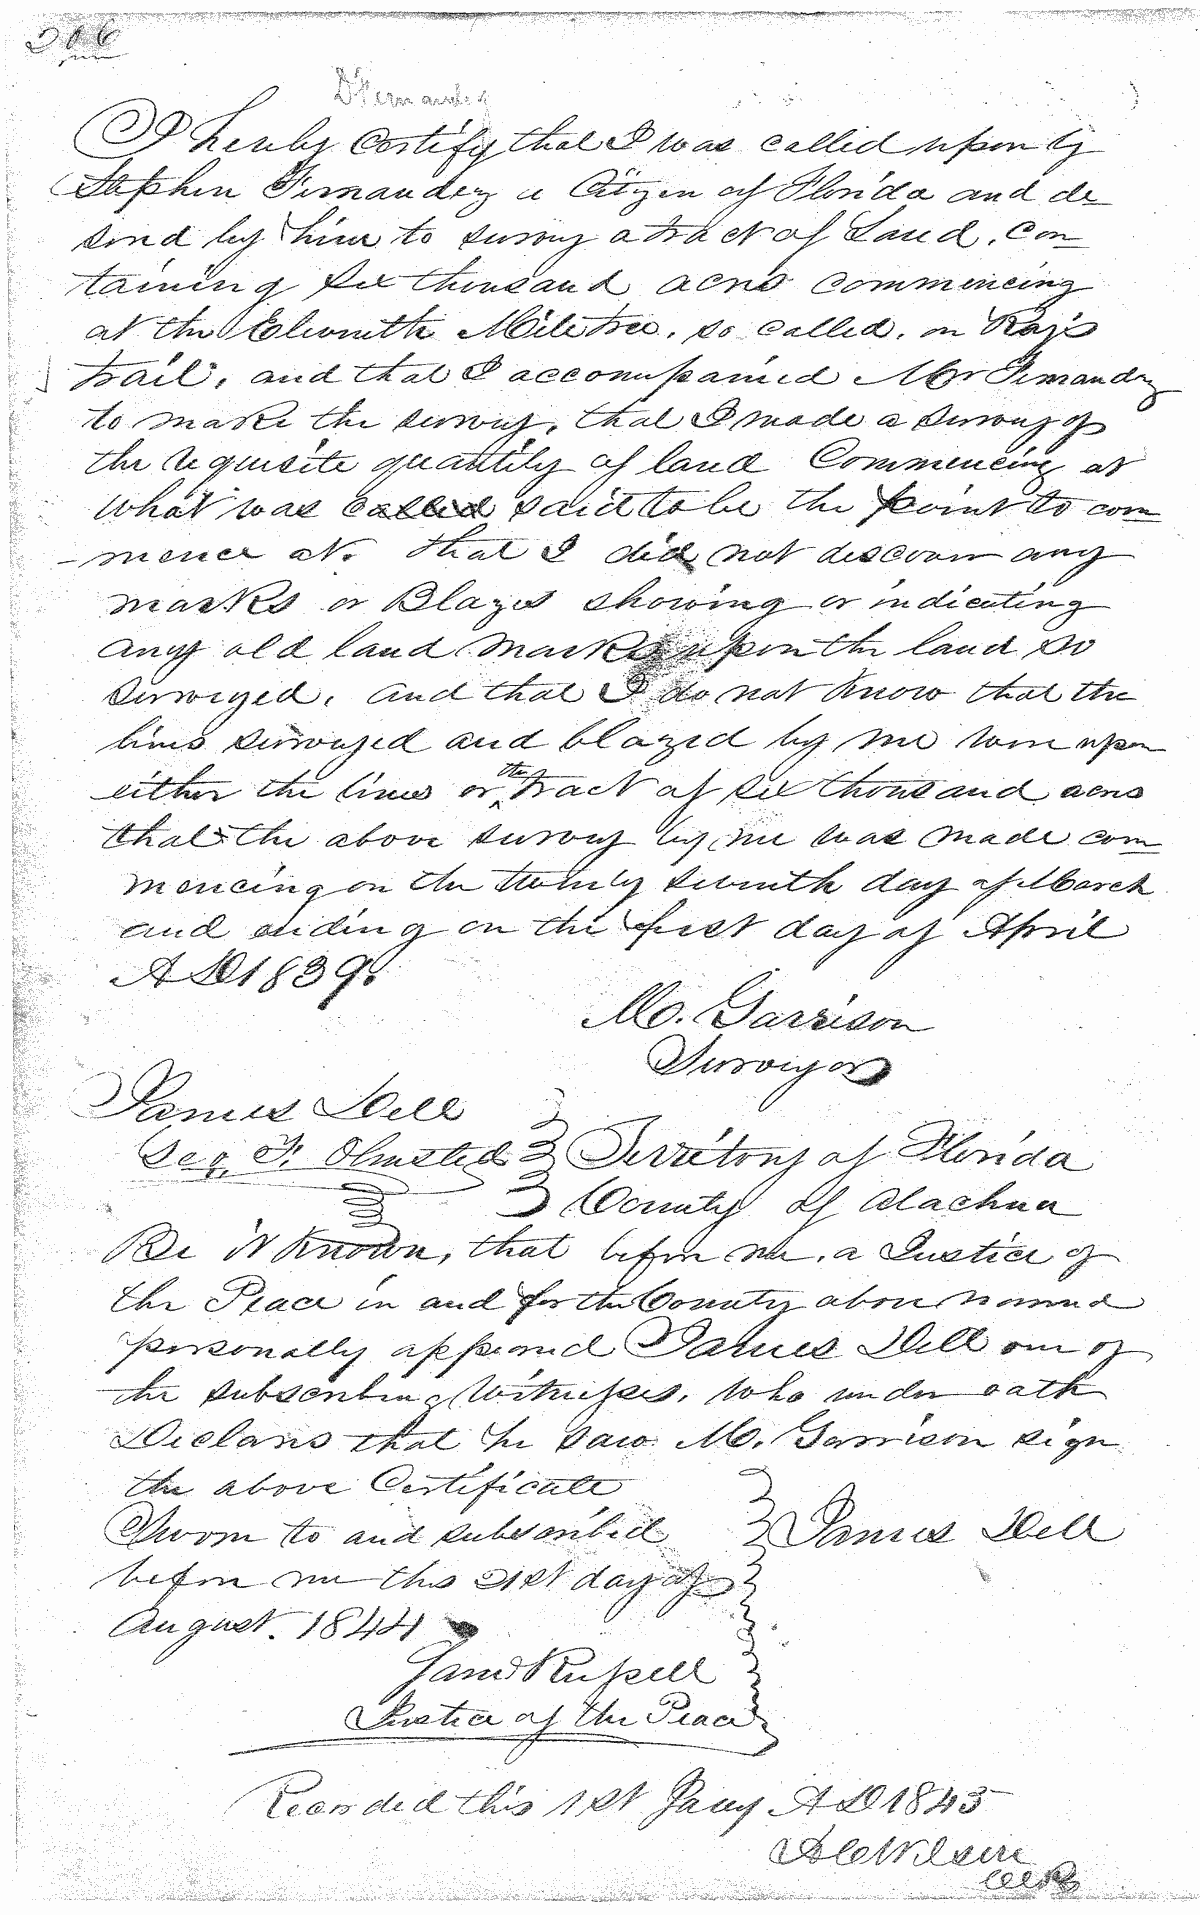 306
D Fernandez
I hereby Certify that I was called upon by
Stephen Fernandez a Citizen of Florida and de
sired by him to survey a tract of Land, Con
taining Six thousand acres commencing
at the Eleventh Mile tree, so called, on Ray's
trail, and that I accompanied Mr Fernandez
to make the survey, that I made a survey of
the requisite quantity of land Commencing at
what was called said to be the point to com
mence at. that I did not discover any
marks or Blazes showing or indicating
any old land marks upon the land so
surveyed, and that I do not know that the
lines surveyed and blazed by me were upon
either the lines or the tract of six thousand acres
that the above survey by me was made com
mencing on the twenty seventh day of March
and ending on the first day of April
AD 1839.
M. Garrison
Surveyor
James Dell
Geo. F. Olmsted
Territory of Florida
County of Alachua
Be it Known, that before me, a Justice of
the Peace in and for the County above named
personally appeared James Dell one of
the subscribing Witnesses, who under oath
Declares that he saw M. Garrison sign
the above Certificate
Sworn to and subscribed
before me this 21st day of
August. 1844
James Dell
Jams Russell
Justice of the Peace
Recorded this 1st Jany AD 1845
A C Wilson
Clk